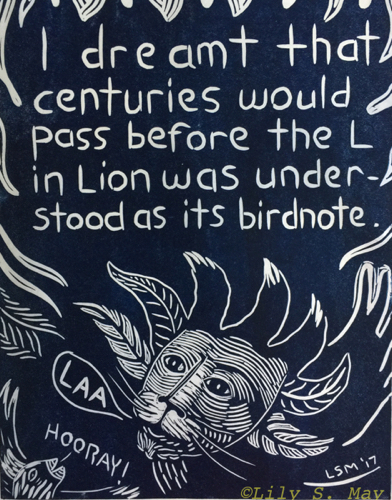 I dreamt that
centuries would
pass before the L
in Lion was under-
stood as its birdnote.
LAA
HOORAY!
LSM '17
©Lily S. May